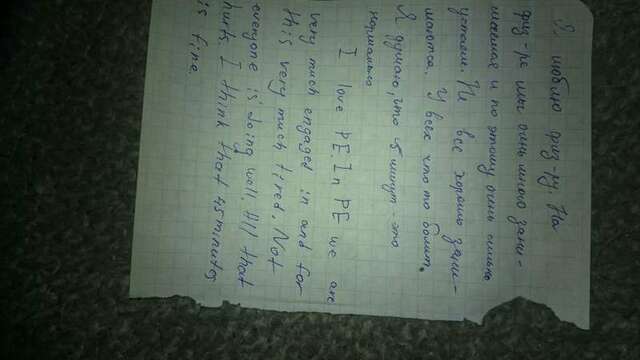 Я люблю физ-ру. На
физ-ре мы очень много зани-
маемся и по этому очень сильно
устаем. Не все хорошо зани-
маются. У всех что то болит.
Я думаю, что 45 минут - это
нормально
I love PE. In PE we are
very much engaged in and for
this very much tired. Not
everyone is doing well. All that
hurts. I think that 45 minutes
is fine.